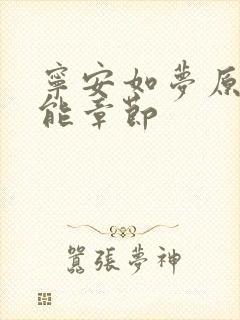 寧安如夢原
能章節
囂張夢神